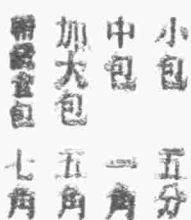 小包　五分
中包　一角
加大包　五角
包　七角